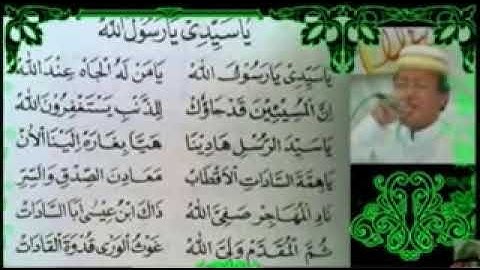 يَا سَيِّدِيْ يَا رَسُوْلَ اللهْ
يَا سَيِّدِيْ يَا رَسُوْلَ اللهْ يَا مَنْ لَهُ الْجَاهْ عِنْدَ اللهْ
اِنَّ الْمُسِيْئِيْنَ قَدْ جَاؤُكْ لِلذَّنْبِ يَسْتَغْفِرُوْنَ اللهْ
يَا سَيِّدَ الرُّسْلِ هَادِيْنَا هَيَّا بِغَارَةْ اِلَيْنَا الْاٰنْ
يَا هِمَّةَ السَّادَاتِ الْاَقْطَابْ مَعَادِنِ الصِّدْقِ وَالسِّرْ
نَادِ الْمُهَاجِرْ صَفِيَّ اللهْ ذَاكَ ابْنُ عِيْسٰى اَبَا السَّادَاتْ
ثُمَّ الْمُقَدَّمْ وَلِيَّ اللهْ غَوْثَ الْوَرٰى قُدْوَةَ الْقَادَاتْ